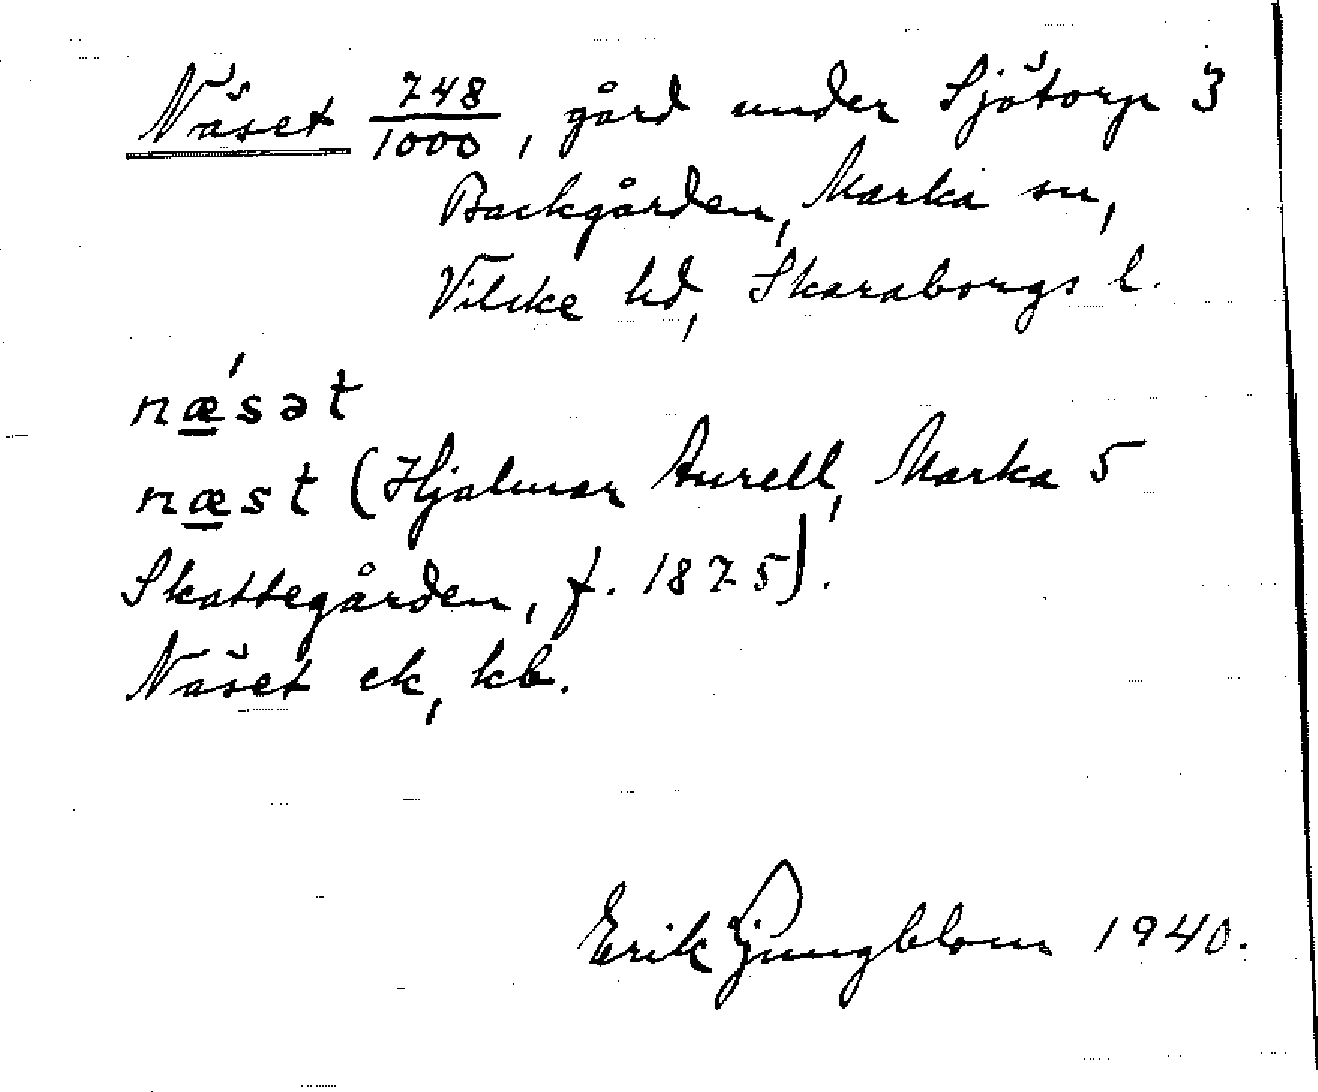 Näset 748/1000, gård under Sjötorp 3
Backgården, Marka sn,
Vilske hd, Skaraborgs l.
nǽ̲sət
næ̲st (Hjalmar Aurell, Marka 5
Skattegården, f. 1875).
Näset ek, kb.
Erik Ljungblom 1940.